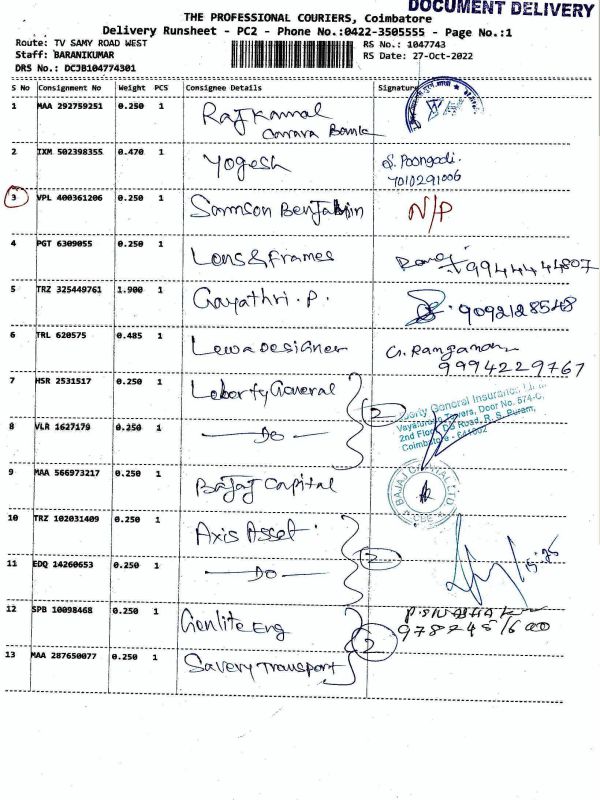 DOCUMENT DELIVERY
THE PROFESSIONAL COURIERS, Coimbatore
Delivery Runsheet - PC2 - Phone No.:0422-3505555 - Page No.:1
Route: TV SAMY ROAD WEST RS No.: 1047743
Staff: BARANIKUMAR RS Date: 27-Oct-2022
DRS No.: DCJB104774301
S No Consignment No Weight PCS Consignee Details Signature
1 MAA 292759251 0.250 1 Rajkamal
Canara Bank
2 IXM 502398355 0.470 1 Yogesh S. Poongodi.
7010291006
3 VPL 400361206 0.250 1 Samson Benjamin N/P
4 PGT 6309055 0.250 1 Lens & Frames 9944444807
5 TRZ 325449761 1.900 1 Gayathri. P. 9092128548
6 TRL 620575 0.485 1 Lewa Designer G. Ranganan
9994229767
7 HSR 2531517 0.250 1 Leborty General 2
Liberty General Insurance
Towers, Door No. 574-C,
2nd Floor, DB Road, R. S. Puram,
Coimbatore - 641002
8 VLR 1627179 0.250 1 Do
9 MAA 566973217 0.250 1 Bajaj Capital BAJAJ CAPITAL LTD
CBE
10 TRZ 102031409 0.250 1 Axis Asset 2
11 EDQ 14260653 0.250 1 Do
12 SPB 10098468 0.250 1 Genlite Eng 2
13 MAA 287650077 0.250 1 Savery Transport